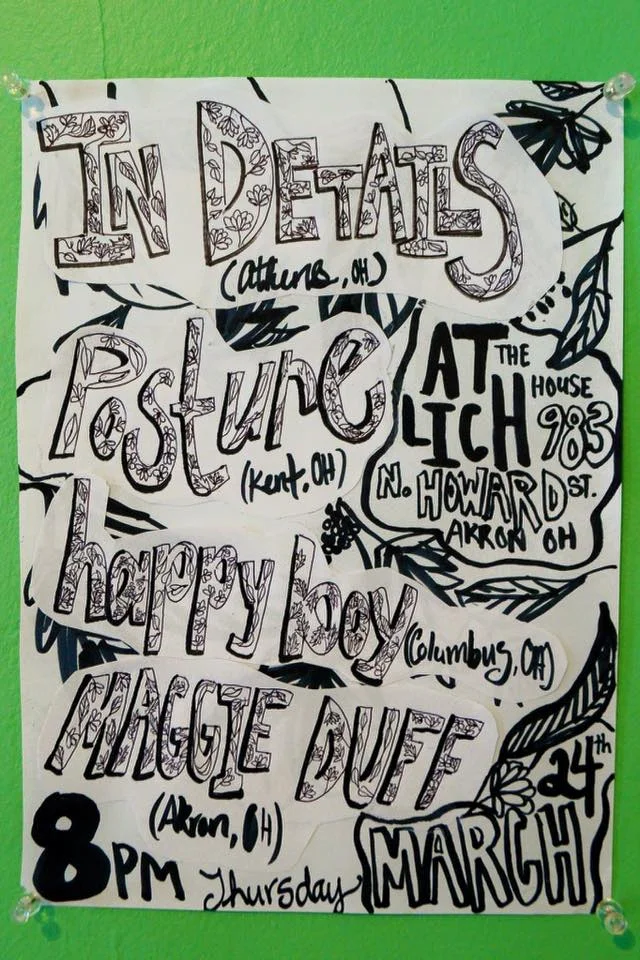 In Details
(Athens, OH)
Posture
(Kent, OH)
AT THE
LICH HOUSE
983
N. HOWARD ST.
AKRON OH
happy boy
(Columbus, OH)
MAGGIE DUFF
(Akron, OH)
8 PM Thursday
24th
MARCH